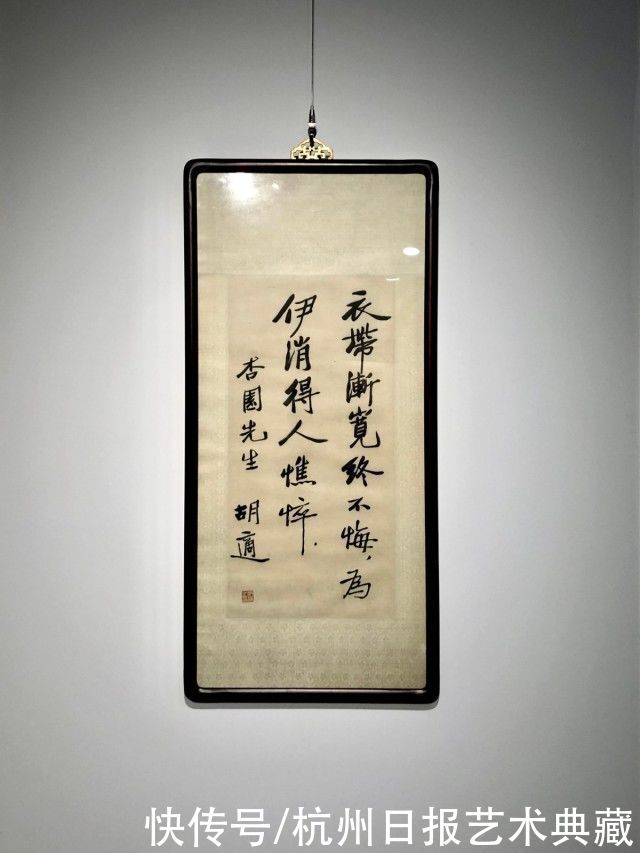 衣帶漸寬終不悔，為
伊消得人憔悴．
杏園先生 胡適
快传号/杭州日报艺术典藏